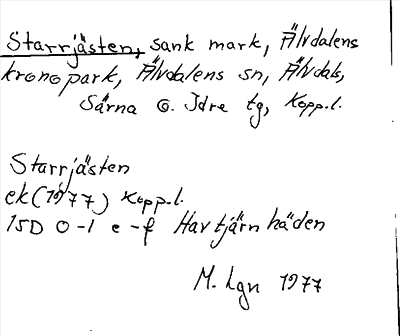 Starrjästen, sank mark, Älvdalens
kronopark, Älvdalens sn, Älvdals,
Särna o. Idre tg, Kopp.l.
Starrjästen
ek (1977) Kopp.l.
15D 0-1 e-f Havtjärnhäden
M. Lgn 1977